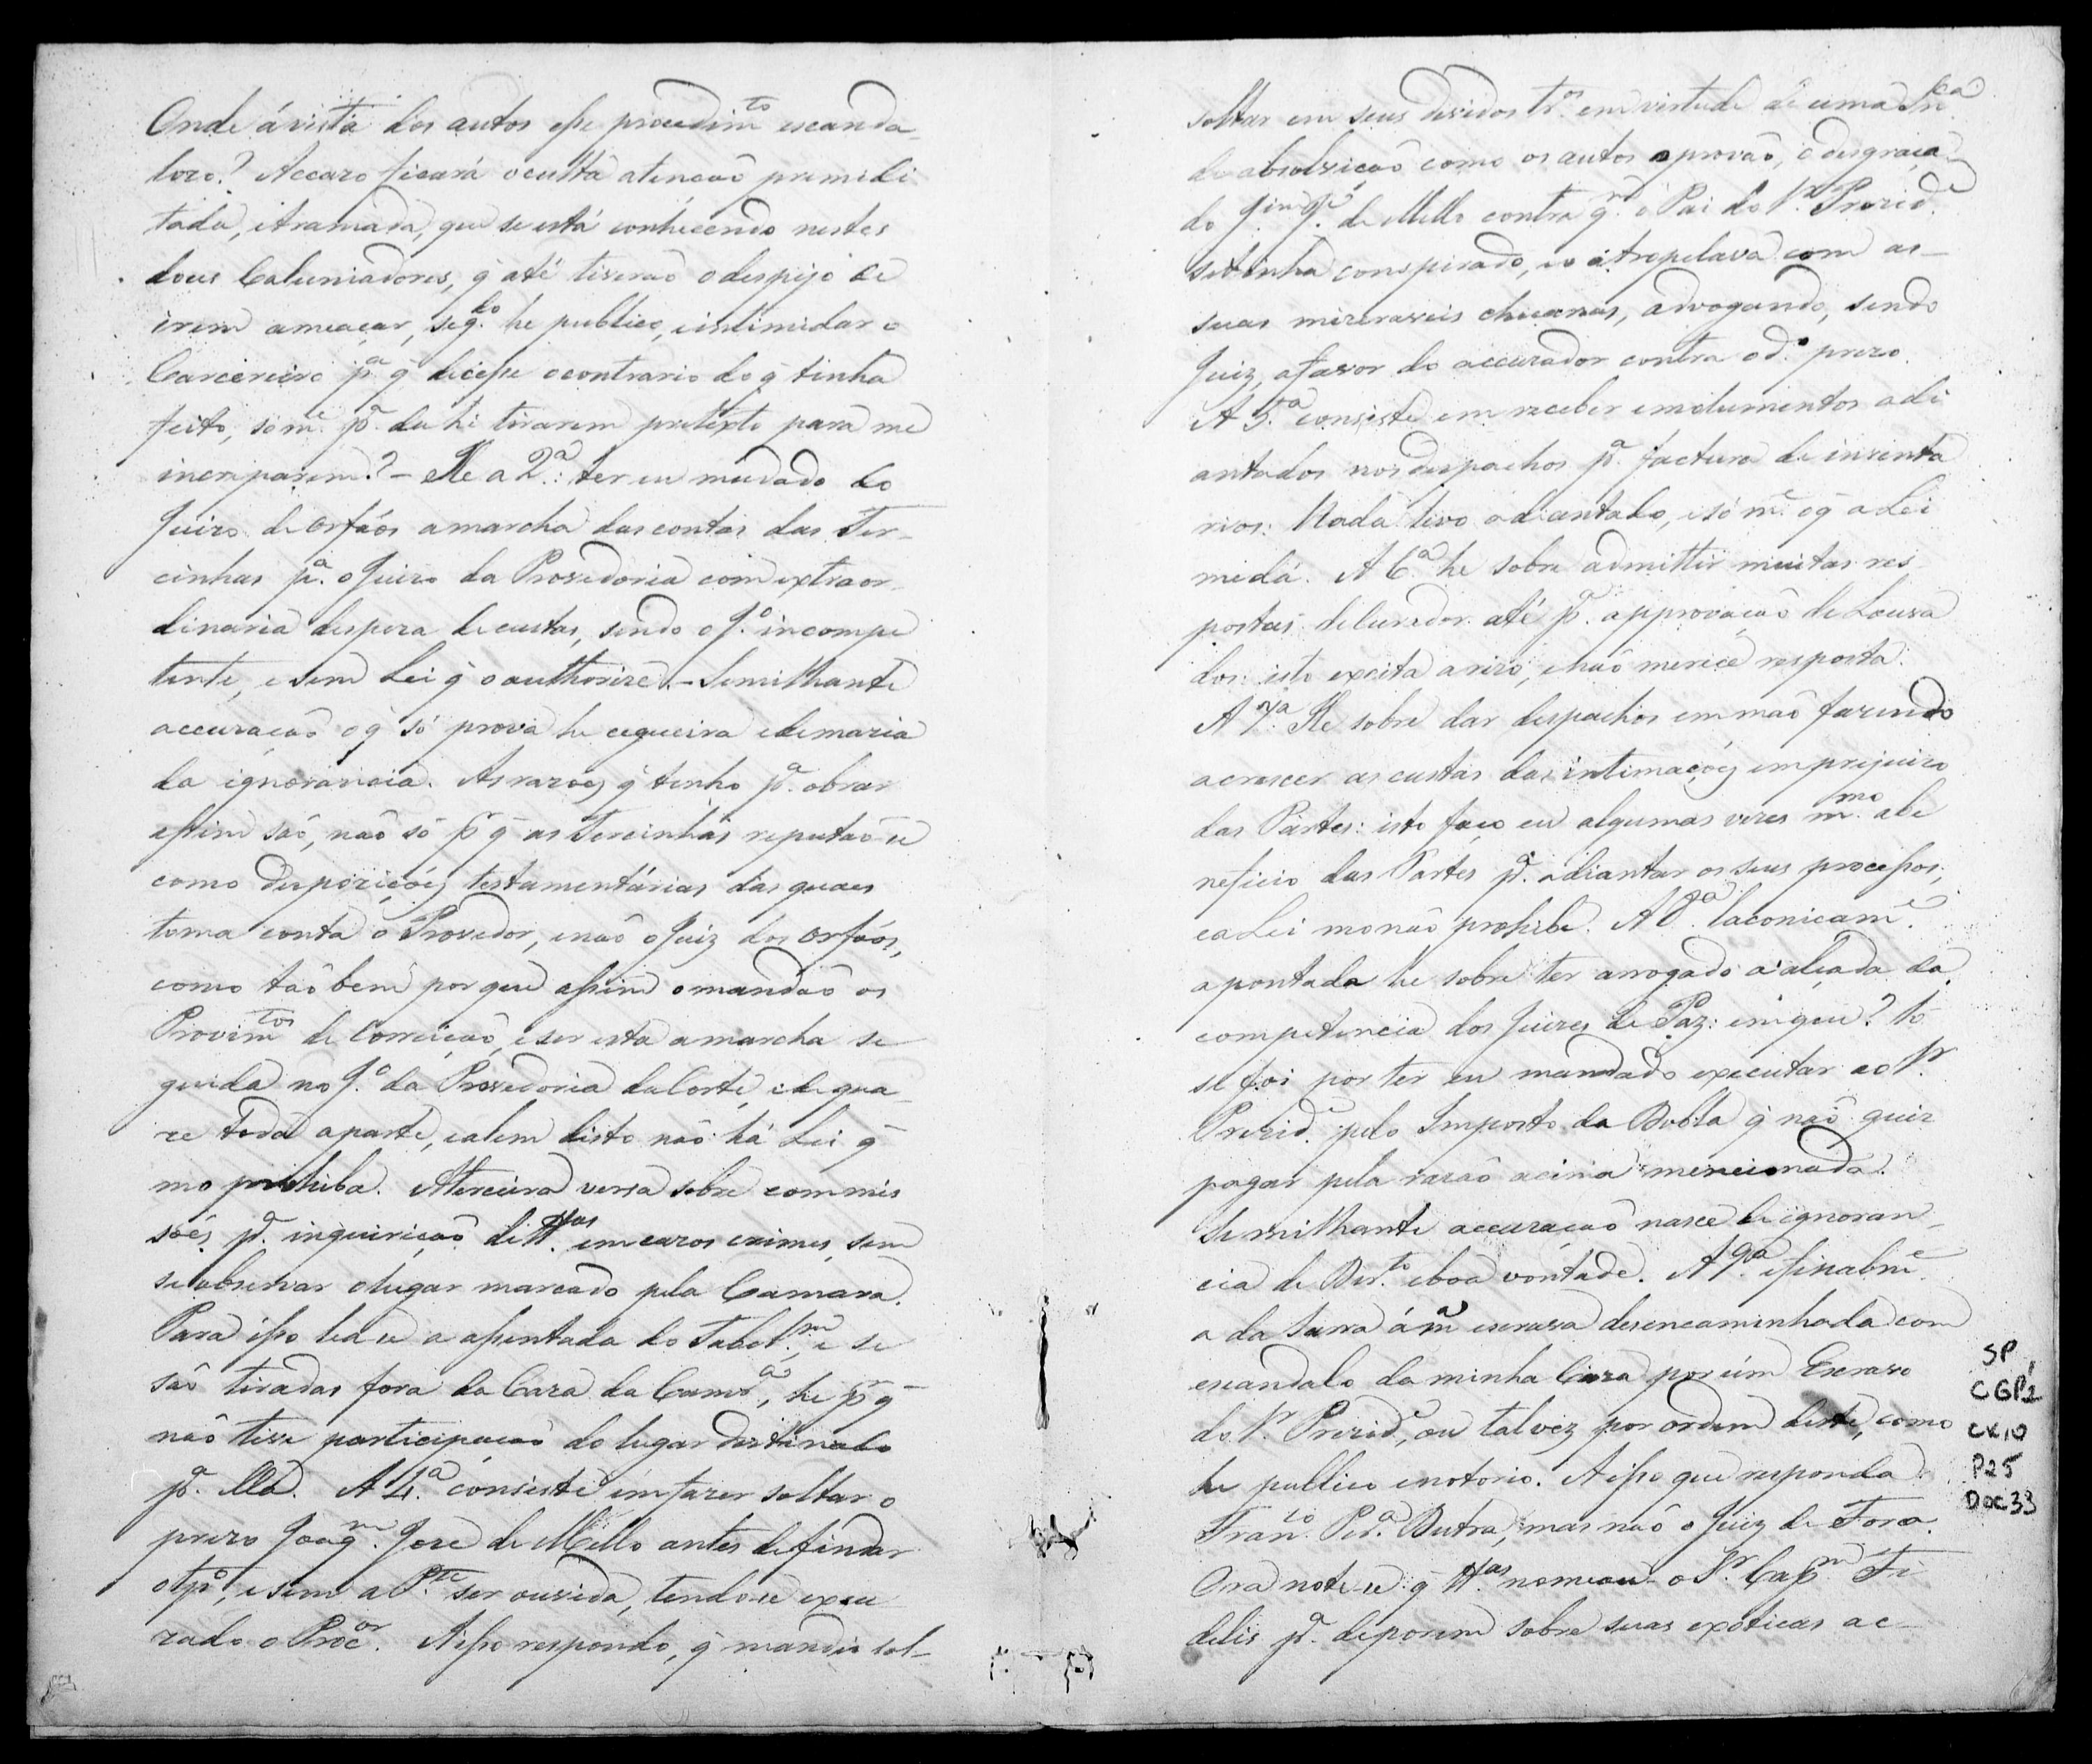 Onde á vista dos autos esse procedim.to escanda-
lozo? Accazo ficará occulta atençaõ premedi
tada, e tramada, que se está conhecendo nestes
dous Caluniadores, q̃ até tiveraõ o despejo de
irem ameaçar, seg.do he publico, e intimidar o
Carcereiro p.a q̃ dicesse o contrario do q̃ tinha
feito, sóm.e p.a da hi tirarem pretexto para me
increparem? - He a 2.a: ter eu mudado do
Juizo de Orfáos a marcha das contas das Ter-
cinhas p.a o Juizo da Provedoria com extraor-
dinaria despeza de custas, sendo o J.o incompe
tente, e sem Lei q̃ o authorize. - Semilhante
accuzaçaõ o q̃ só prova he cegueira e demazia
da ignorancia. As razoẽs q̃ tenho p.a obrar
assim saõ, naõ só p.r q̃ as Tercinhas reputaõ-se
como dispoziçoẽs testamentárias das quaes
toma conta o Provedor, e naõ o Juiz dos Orfáos,
como taõ bem por que assim o mandaõ os
Provim.tos de Correiçaõ, e ser esta a marcha se
guida no J.o da Provedoria da Corte, e de qua-
ze toda a parte, e alem disto naõ há Lei q̃
mo prohiba. A terceira versa sobre commis
soẽs p.a inquiriçaõ de tt.as em cazos crimes, sem
se observar o lugar marcado pela Camara.
Para isso lea-se a assentada do Tabel.m, e se
saõ tiradas fora da Caza da Camr.a, he p.r q̃
naõ tive participaçaõ do lugar destinado
p.a ella. A 4.a consiste em fazer soltar o
prezo Joaq.m Joze de Mello antes de findar
o tp.o, e sem a P.te ser ouvida, tendo-se excu
zado o Proc.or. A isso respondo, q̃ mandei sol-
soltar em seus devidos tr.os em virtude de uma Sn.ca
de absolviçaõ como os autos o provaõ, o desgraça
do J.im J.é de Mello contra q.m o Pai do S.r Prezid.e
se tinha conspirado, e o atropelava com as-
suas mizeraveis chicanas, advogando, sendo
Juiz, a favor do accuzador contra o d.o prezo.
A 5.a consiste em receber emolumentos adi
antados nos despachos p.a factura de inventa
rios: Nada levo adiantado, e só m.e o q̃ a Lei
me dá. A 6.a he sobre admittir muitas res-
postas de Curador até p.a approvaçaõ de Louva
dos: isto excita a rizo, e naõ merece resposta.
A 7.a He sobre dar despachos em maõ fazendo
acrescer as custas das intimaçoẽs em prejuizo
das Partes: isto faço eu algumas vezes m.mo a be
neficio das Partes p.a adiantar os seus processos,
e a Lei mo naõ prohibe. A 8.a laconicam.e
apontada he sobre ter arrogado a alçada da
competencia dos Juizes de Paz: em que? Só
se foi por ter eu mandado executar ao S.r
Prezid.e pelo Imposto da Dobla q̃ naõ quiz
pagar pela razaõ acima mencionada.
Semilhante accuzaçaõ nasce de ignoran-
cia de Dir.to e boa vontade. A 9.a e finalm.e
a da surra á m.a escrava desencaminhada com
escandalo da minha Caza por úm Escravo
do S.r Prezid.e, ou talvez por ordem deste, como
he publico e notorio. A isso que responda
Fran.co Per.a Dutra, mas naõ o Juiz de Fora.
Ora note-se q̃ tt.as nomeou o S.r Cap.m Fi
delis p.a deporem sobre suas exoticas ac-
SP
CGP1
CX10
P25
Doc33